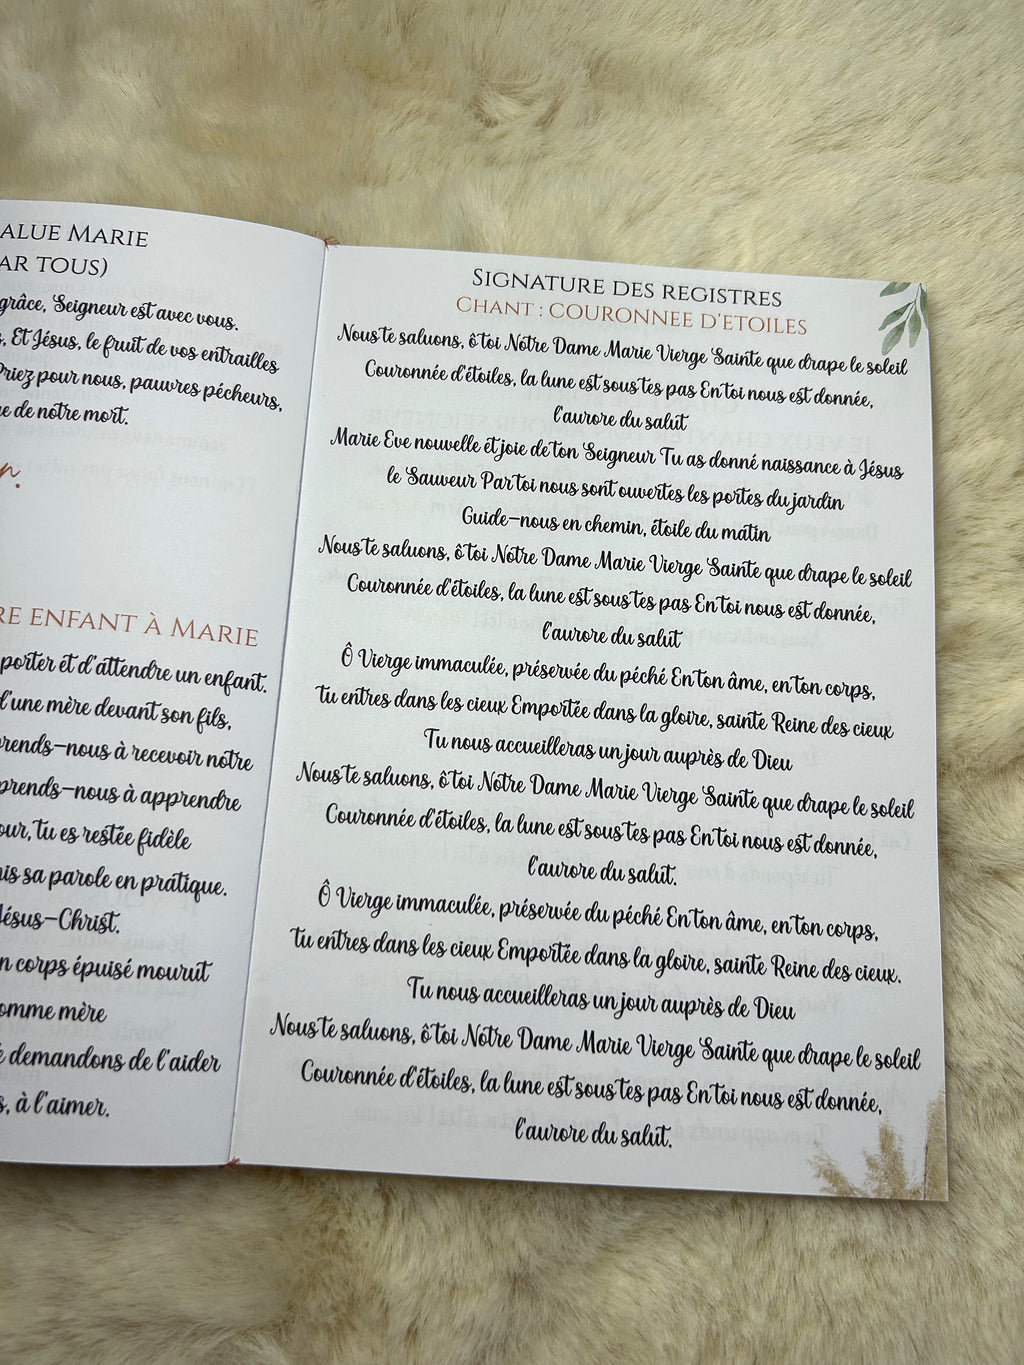 ALUE MARIE
AR TOUS)
grâce, Seigneur est avec vous.
Et Jésus, le fruit de vos entrailles
Priez pour nous, pauvres pécheurs,
de notre mort.
RE ENFANT À MARIE
porter et d'attendre un enfant.
d'une mère devant son fils,
prends-nous à recevoir notre
prends-nous à apprendre
our, tu es restée fidèle
is sa parole en pratique.
Jésus-Christ.
n corps épuisé mourut
omme mère
demandons de l'aider
s, à l'aimer.
SIGNATURE DES REGISTRES
CHANT : COURONNEE D'ETOILES
Nous te saluons, ô toi Notre Dame Marie Vierge Sainte que drape le soleil
Couronnée d'étoiles, la lune est sous tes pas En toi nous est donnée,
l'aurore du salut
Marie Eve nouvelle et joie de ton Seigneur Tu as donné naissance à Jésus
le Sauveur Par toi nous sont ouvertes les portes du jardin
Guide-nous en chemin, étoile du matin
Nous te saluons, ô toi Notre Dame Marie Vierge Sainte que drape le soleil
Couronnée d'étoiles, la lune est sous tes pas En toi nous est donnée,
l'aurore du salut
Ô Vierge immaculée, préservée du péché En ton âme, en ton corps,
tu entres dans les cieux Emportée dans la gloire, sainte Reine des cieux
Tu nous accueilleras un jour auprès de Dieu
Nous te saluons, ô toi Notre Dame Marie Vierge Sainte que drape le soleil
Couronnée d'étoiles, la lune est sous tes pas En toi nous est donnée,
l'aurore du salut.
Ô Vierge immaculée, préservée du péché En ton âme, en ton corps,
tu entres dans les cieux Emportée dans la gloire, sainte Reine des cieux.
Tu nous accueilleras un jour auprès de Dieu
Nous te saluons, ô toi Notre Dame Marie Vierge Sainte que drape le soleil
Couronnée d'étoiles, la lune est sous tes pas En toi nous est donnée,
l'aurore du salut.